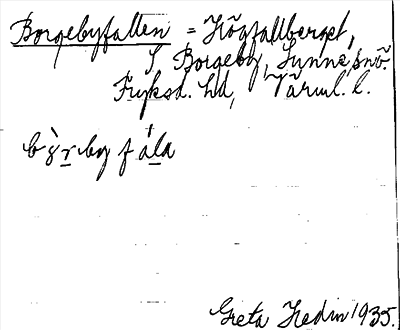 Borgebyfallen = Högfallberget,
S Borgeby, Sunne snö.
Fryksd. hd, Värml. l.
Greta Hedin 1935.